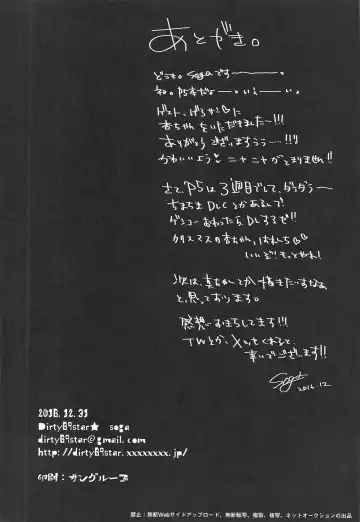 あとがき。
どうも。sogaです———。
初。P5本だよー。いえーい。
ゲスト、
杏ちゃんをいただきました〜!!!
ありがとうございますぅぅ…!!!
かわいいよう ニヤニヤがとまりません!!
さて、P5は3週目でして、ダラダラー
ちまちまDLCとかあるんで
ゲンコーおわったら、DLするぜ!!
クリスマスの杏ちゃん、はれんち
いいぞ!もっとやれ!
次は、真ちゃんとか描きたいすなあ
と、思っております。
感想おまちしてます!!!
TWとか、メッセくれると、
幸いでございます!!
Soga
2016.12
2016.12.31
Dirty69star★ soga
dirty69star@gmail.com
http://dirty69star.xxxxxxxx.jp/
印刷：サングループ
禁止：無断Webサイトアップロード、無断転写、複製、複写、ネットオークションの出品